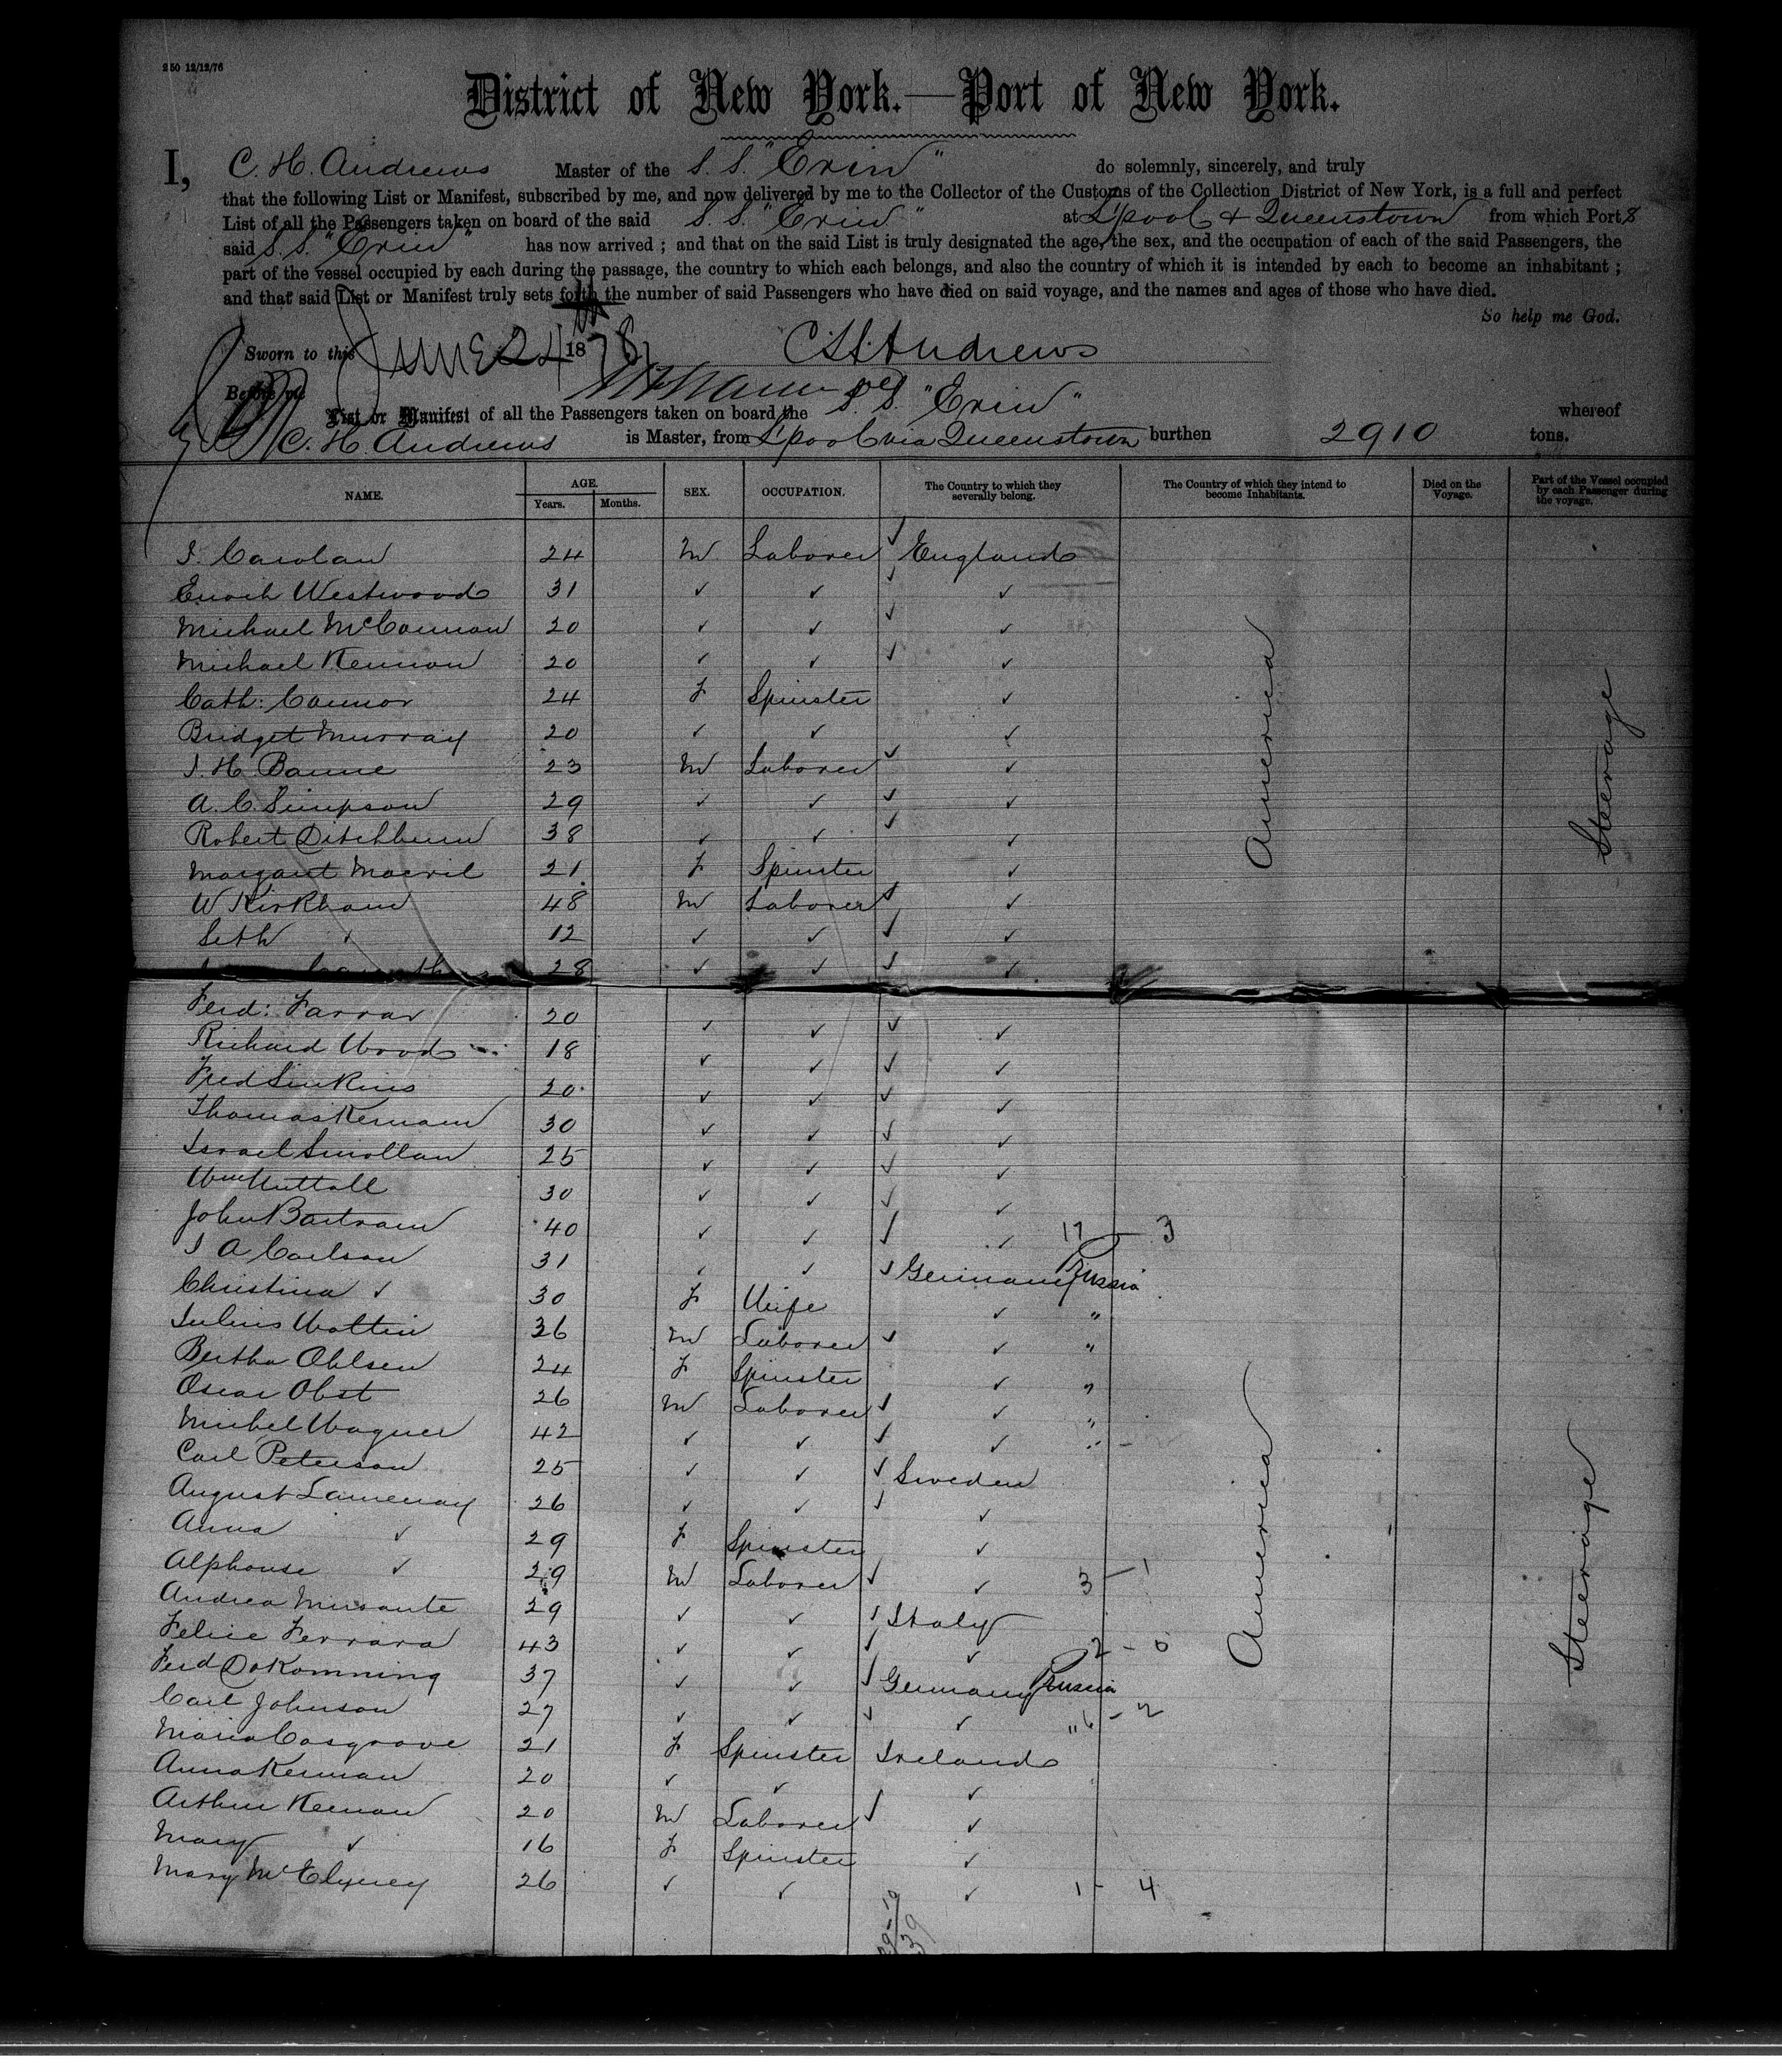 250 12/12/76
District of New York.—Port of New York.
I, C. H. Andrews Master of the S. S. "Erin" do solemnly, sincerely, and truly
that the following List or Manifest, subscribed by me, and now delivered by me to the Collector of the Customs of the Collection District of New York, is a full and perfect
List of all the Passengers taken on board of the said S. S. "Erin" at L'pool & Queenstown from which Port s
said S. S. "Erin" has now arrived ; and that on the said List is truly designated the age, the sex, and the occupation of each of the said Passengers, the
part of the vessel occupied by each during the passage, the country to which each belongs, and also the country of which it is intended by each to become an inhabitant ;
and that said List or Manifest truly sets forth the number of said Passengers who have died on said voyage, and the names and ages of those who have died.
So help me God.
Sworn to this June 24th 1878, C. H. Andrews
Before me
List or Manifest of all the Passengers taken on board the S. S. "Erin" whereof
C. H. Andrews is Master, from L'pool via Queenstown burthen 2910 tons.
NAME. AGE. Years. Months. SEX. OCCUPATION. The Country to which they severally belong. The Country of which they intend to become Inhabitants. Died on the Voyage. Part of the Vessel occupied by each Passenger during the voyage.
J. Carolan 24 M Laborer ✓ England
Enoch Westwood 31 ✓ ✓ ✓ ✓
Michael McConnon 20 ✓ ✓ ✓ ✓
Michael Kennon 20 ✓ ✓ ✓ ✓
Cath: Connor 24 F Spinster ✓
Bridget Murray 20 ✓ ✓ ✓
J. H. Banne 23 M Laborer ✓ ✓
A. C. Simpson 29 ✓ ✓ ✓ ✓
Robert Ditchburn 38 ✓ ✓ ✓ ✓
Margaret 21 F Spinster ✓
W Kirkham 48 M Laborer ✓ ✓
Seth ✓ 12 ✓ ✓ ✓ ✓
28 ✓ ✓ ✓ ✓
America
Steerage
Ferd: Farrar 20 ✓ ✓ ✓ ✓
Richard Woods 18 ✓ ✓ ✓ ✓
Fred Sinkins 20 ✓ ✓ ✓ ✓
Thomas Kernan 30 ✓ ✓ ✓ ✓
Israel Smollan 25 ✓ ✓ ✓ ✓
Wm Nuttall 30 ✓ ✓ ✓ ✓
John Bartram 40 ✓ ✓ ✓ ✓ 17 - 3
J A Carlson 31 ✓ ✓ ✓ Germany Prussia
Christina ✓ 30 F Wife ✓ "
Julius Wottin 36 M Laborer ✓ ✓ "
Bertha Ohlsen 24 F Spinster ✓ "
Oscar Obst 26 M Laborer ✓ ✓ "
Michel Wagner 42 ✓ ✓ ✓ ✓ "
Carl Peterson 25 ✓ ✓ ✓ Sweden
August 26 ✓ ✓ ✓ ✓
Anna ✓ 29 F Spinster ✓
Alphouse ✓ 29 M Laborer ✓ ✓ 3 - 1
Andrea Musante 29 ✓ ✓ ✓ Italy
Felice Ferrara 43 ✓ ✓ ✓ ✓ 2 - 0
Ferd DoKomning 37 ✓ ✓ ✓ Germany Prussia
Carl Johnson 27 ✓ ✓ ✓ ✓ " 6 - 2
Maria Cosgrove 21 F Spinster Ireland
Anna Kernan 20 ✓ ✓ ✓
Arthur Kernan 20 M Laborer ✓ ✓
Mary ✓ 16 F Spinster ✓
Mary McElyney 26 ✓ ✓ ✓ 1 - 4
America
Steerage
29-10
39